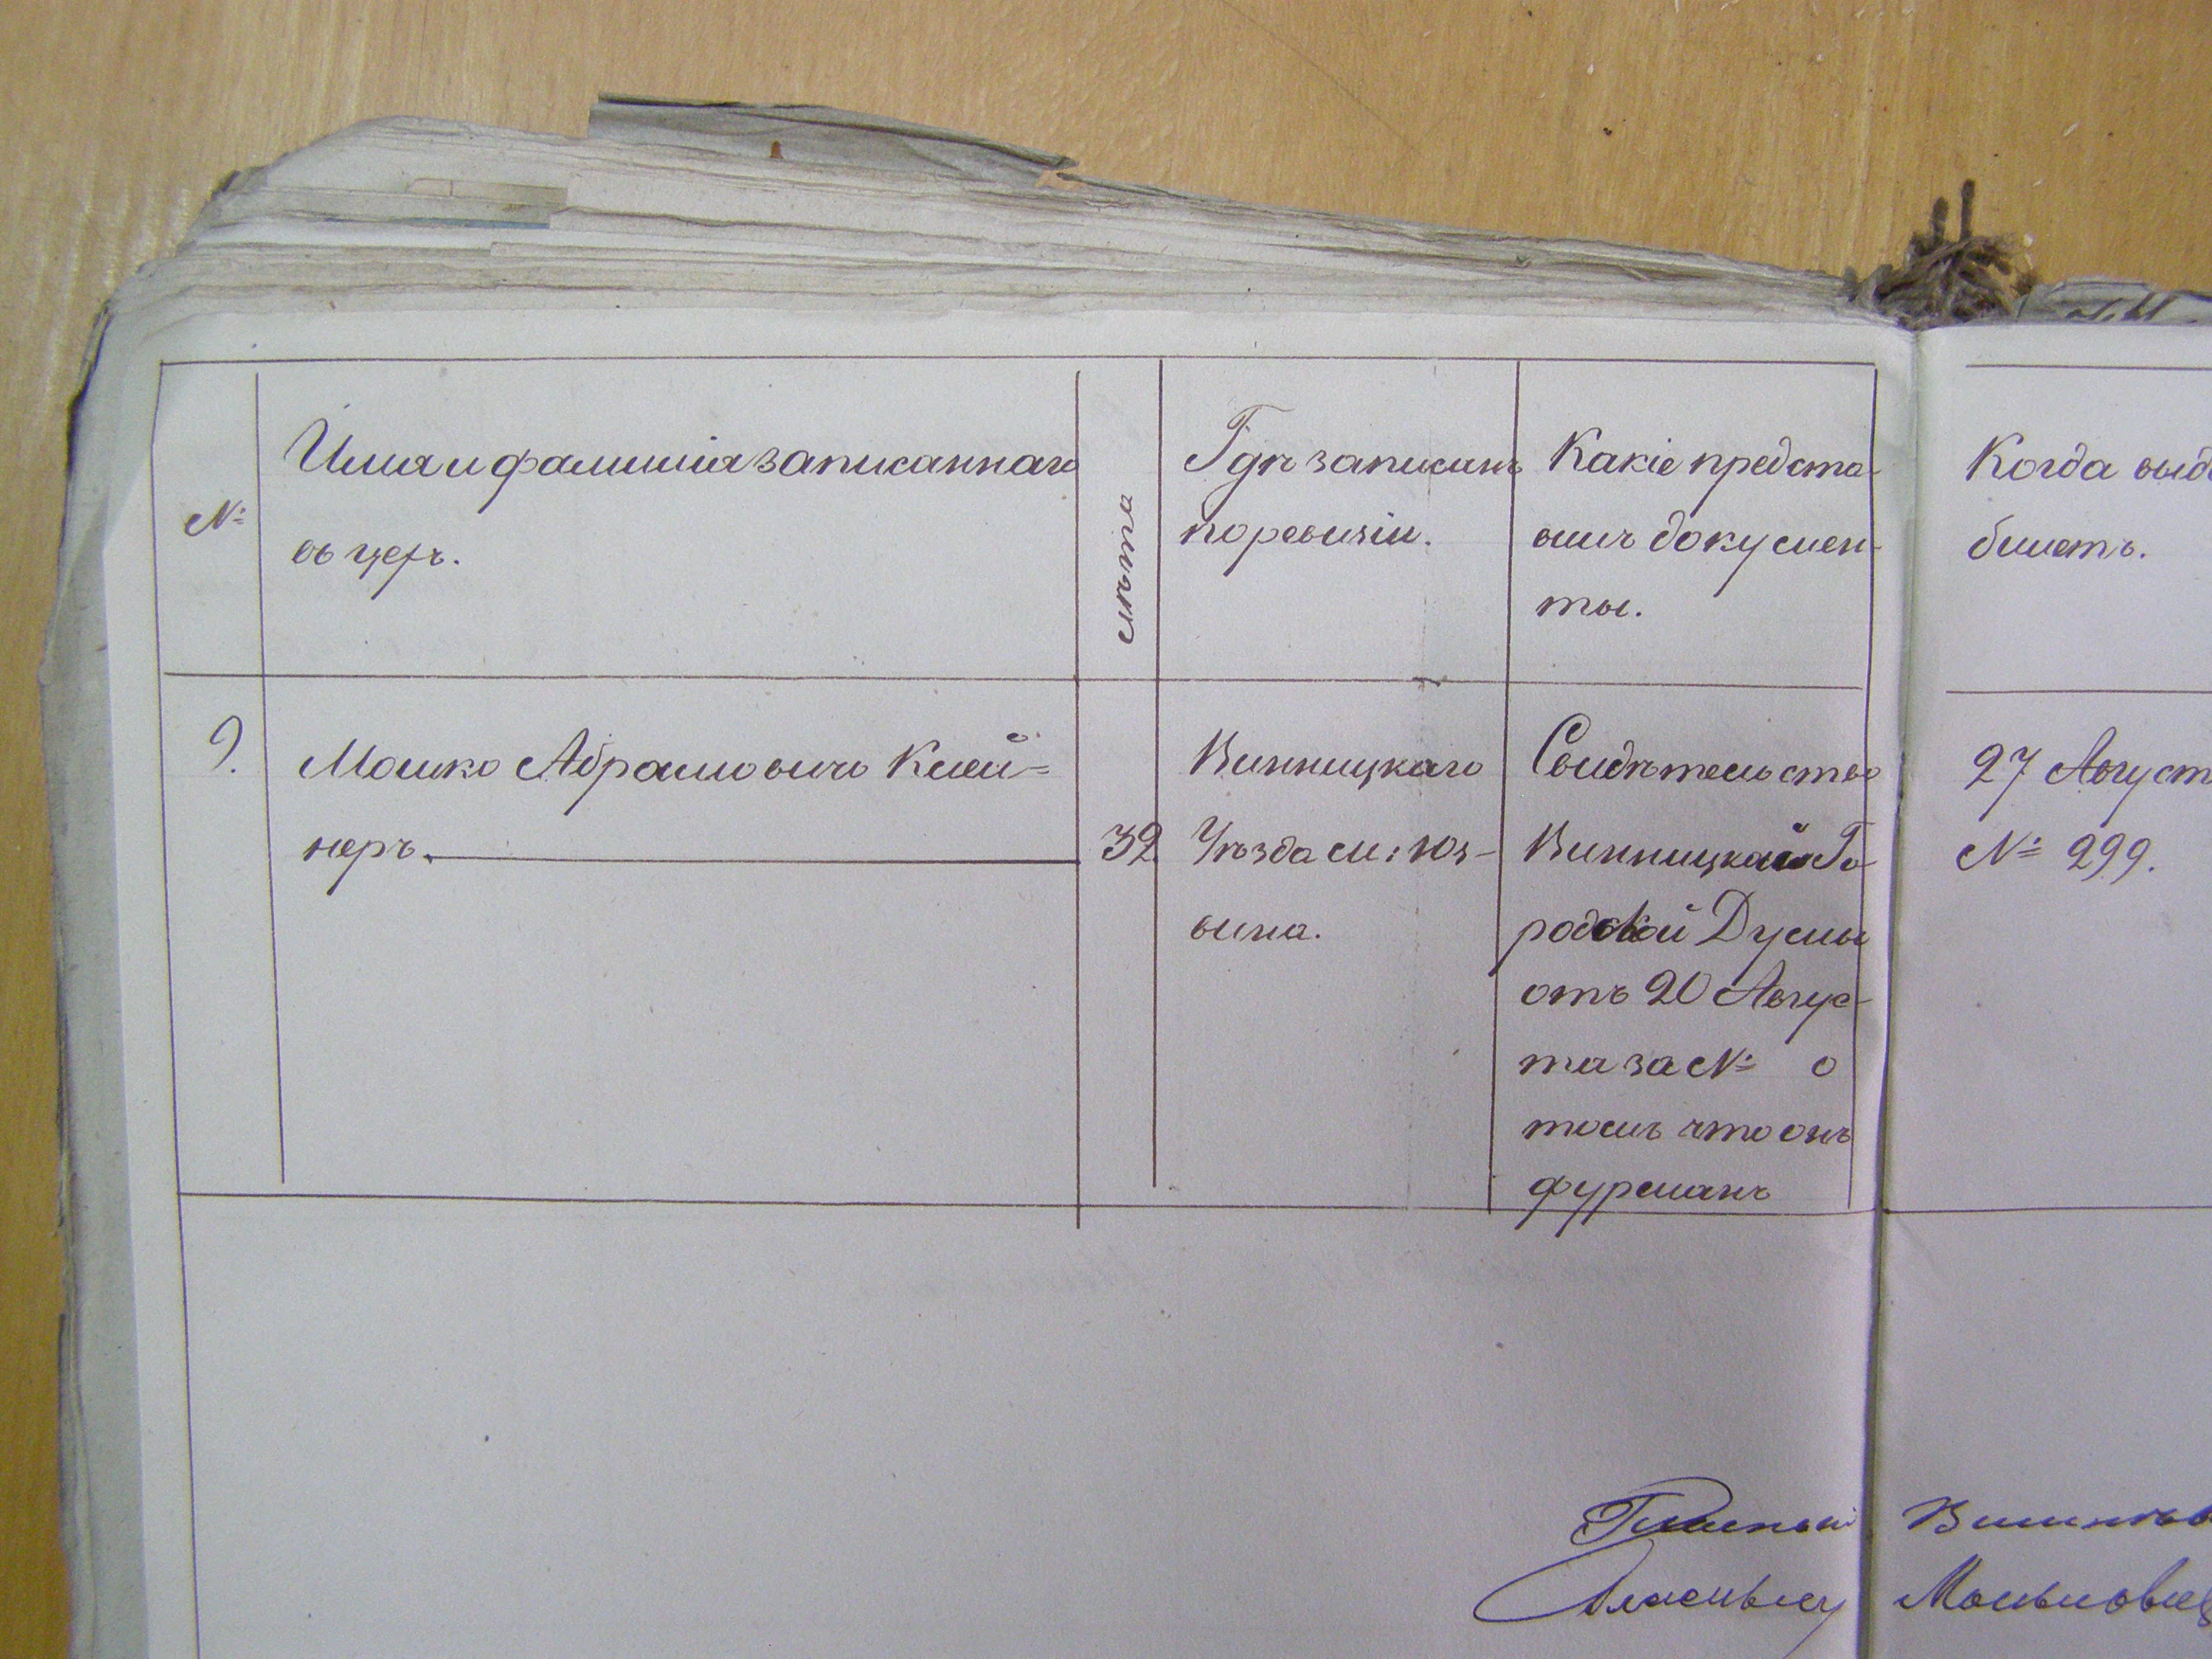 №
Имя и фамилія записаннаго
въ цехъ.
лѣта
Гдѣ записанъ
по ревизіи.
Какіе предста-
вилъ докумен-
ты.
Когда выд
билетъ.
9.
Мошко Абрамовичъ Клей=
неръ.
32
Винницкаго
Уѣзда м: Юз-
вина.
Свидѣтельство
Винницкой Го-
родской Думы
отъ 20 Авгус-
та за № о
томъ что онъ
фурманъ
27 Август
№ 299.